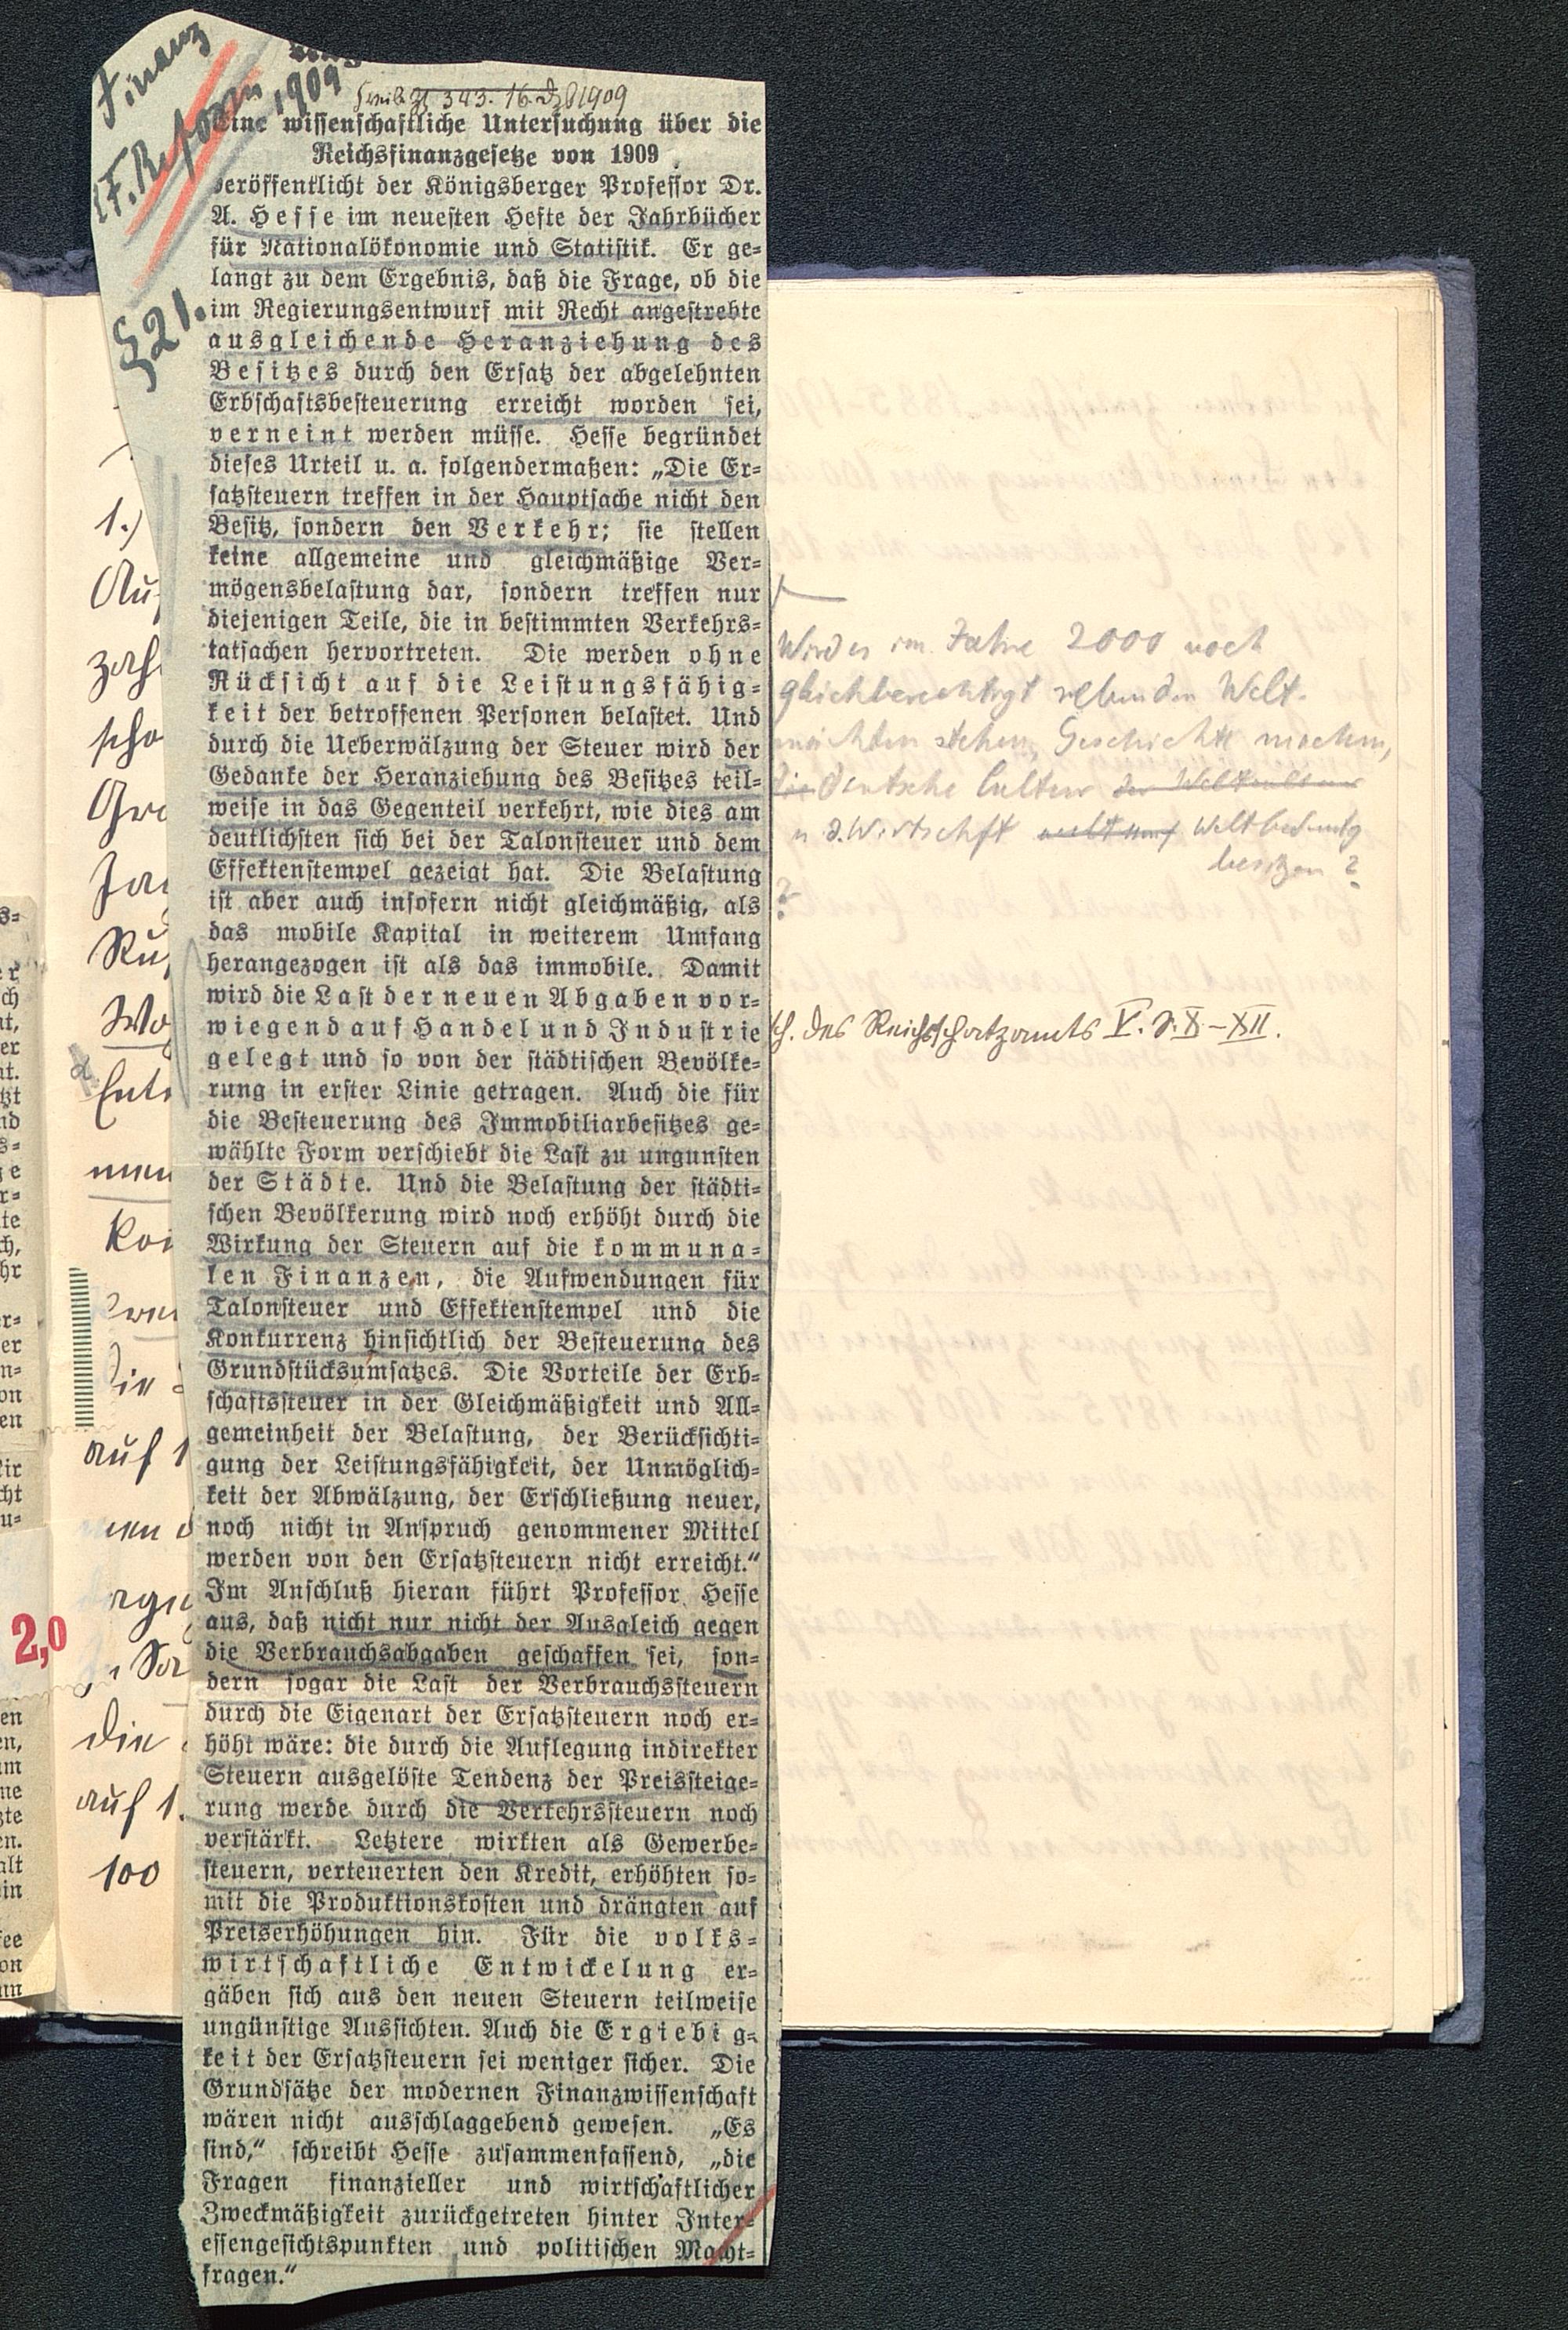 Finanz
F. Reform 1909
343. 16. Dz 1909
§ 21.
Eine wissenschaftliche Untersuchung über die
Reichsfinanzgesetze von 1909
veröffentlicht der Königsberger Professor Dr.
A. Hesse im neuesten Hefte der Jahrbücher
für Nationalökonomie und Statistik. Er ge-
langt zu dem Ergebnis, daß die Frage, ob die
im Regierungsentwurf mit Recht angestrebte
ausgleichende Heranziehung des
Besitzes durch den Ersatz der abgelehnten
Erbschaftsbesteuerung erreicht worden sei,
verneint werden müsse. Hesse begründet
dieses Urteil u. a. folgendermaßen: „Die Er-
satzsteuern treffen in der Hauptsache nicht den
Besitz, sondern den Verkehr; sie stellen
keine allgemeine und gleichmäßige Ver-
mögensbelastung dar, sondern treffen nur
diejenigen Teile, die in bestimmten Verkehrs-
tatsachen hervortreten. Die werden ohne
Rücksicht auf die Leistungsfähig-
keit der betroffenen Personen belastet. Und
durch die Ueberwälzung der Steuer wird der
Gedanke der Heranziehung des Besitzes teil-
weise in das Gegenteil verkehrt, wie dies am
deutlichsten sich bei der Talonsteuer und dem
Effektenstempel gezeigt hat. Die Belastung
ist aber auch insofern nicht gleichmäßig, als
das mobile Kapital in weiterem Umfang
herangezogen ist als das immobile. Damit
wird die Last der neuen Abgaben vor-
wiegend auf Handel und Industrie
gelegt und so von der städtischen Bevölke-
rung in erster Linie getragen. Auch die für
die Besteuerung des Immobiliarbesitzes ge-
wählte Form verschiebt die Last zu ungunsten
der Städte. Und die Belastung der städti-
schen Bevölkerung wird noch erhöht durch die
Wirkung der Steuern auf die kommuna-
len Finanzen, die Aufwendungen für
Talonsteuer und Effektenstempel und die
Konkurrenz hinsichtlich der Besteuerung des
Grundstücksumsatzes. Die Vorteile der Erb-
schaftssteuer in der Gleichmäßigkeit und All-
gemeinheit der Belastung, der Berücksichti-
gung der Leistungsfähigkeit, der Unmöglich-
keit der Abwälzung, der Erschließung neuer,
noch nicht in Anspruch genommener Mittel
werden von den Ersatzsteuern nicht erreicht.“
Im Anschluß hieran führt Professor Hesse
aus, daß nicht nur nicht der Ausgleich gegen
die Verbrauchsabgaben geschaffen sei, son-
dern sogar die Last der Verbrauchssteuern
durch die Eigenart der Ersatzsteuern noch er-
höht wäre: die durch die Auflegung indirekter
Steuern ausgelöste Tendenz der Preissteige-
rung werde durch die Verkehrssteuern noch
verstärkt. Letztere wirkten als Gewerbe-
steuern, verteuerten den Kredit, erhöhten so-
mit die Produktionskosten und drängten auf
Preiserhöhungen hin. Für die volks-
wirtschaftliche Entwickelung er-
gäben sich aus den neuen Steuern teilweise
ungünstige Aussichten. Auch die Ergiebig-
keit der Ersatzsteuern sei weniger sicher. Die
Grundsätze der modernen Finanzwissenschaft
wären nicht ausschlaggebend gewesen. „Es
sind,“ schreibt Hesse zusammenfassend, „die
Fragen finanzieller und wirtschaftlicher
Zweckmäßigkeit zurückgetreten hinter Inter-
essengesichtspunkten und politischen Macht-
fragen.“
Wird es im Jahre 2000 noch
gleichberechtigt neben den Welt-
mächten stehen, Geschichte machen,
die deutsche Cultur der Weltcultur
u. d. Wirtschaft Weltbedeutg
besitzen?
?
des Reichsschatzamts V. S. X–XII.
1.)
auf 1
die
auf 1.
100
2,0